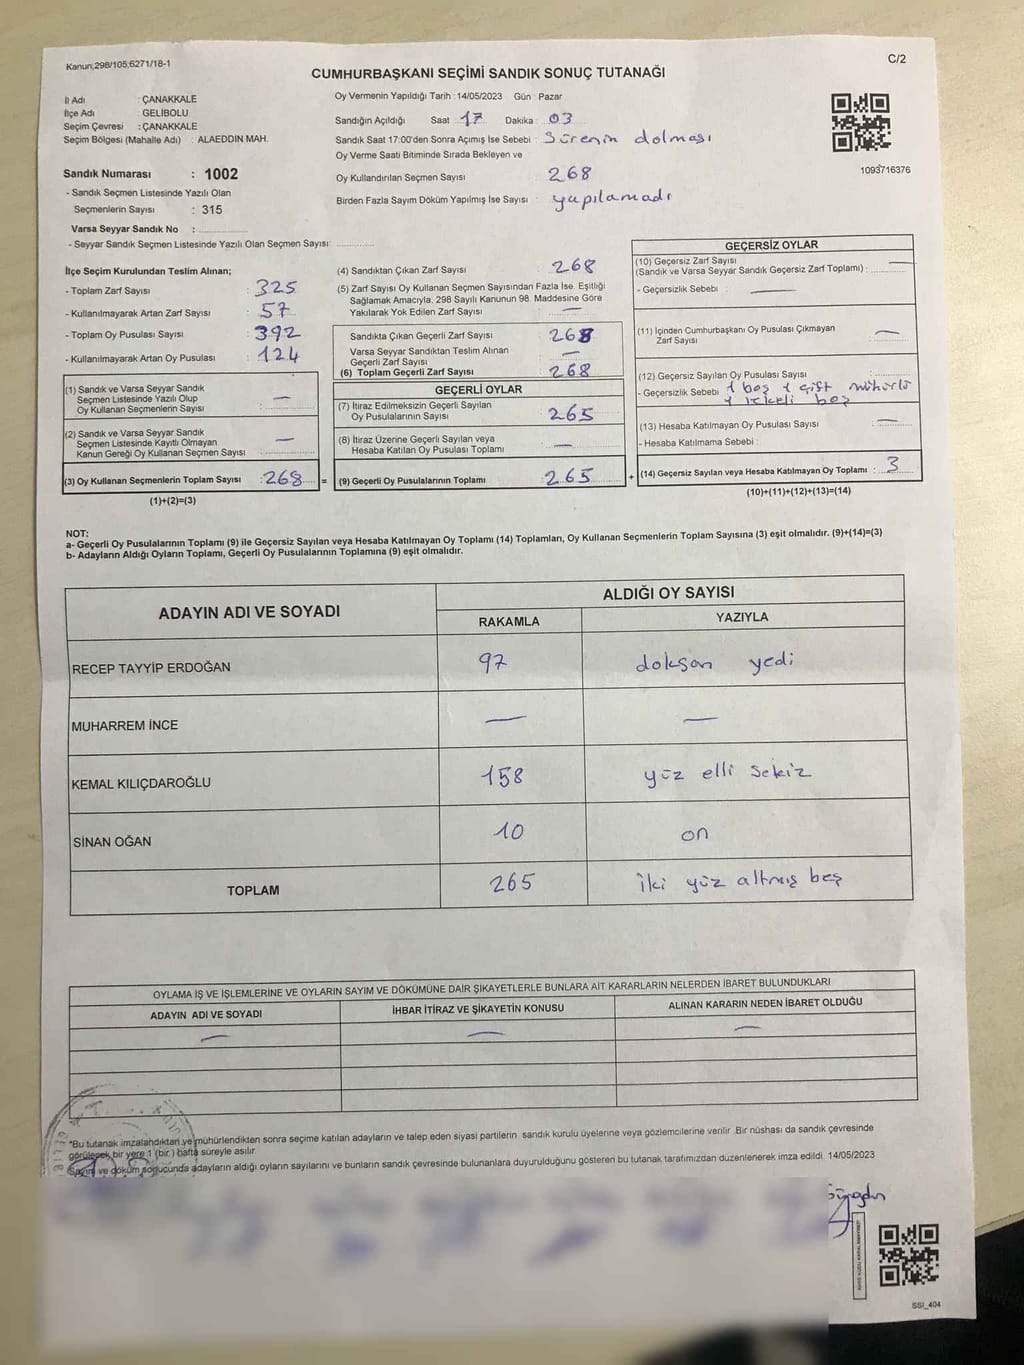 Kanun,298/105,6271/18-1
C/2
CUMHURBAŞKANI SEÇİMİ SANDIK SONUÇ TUTANAĞI
İl Adı : ÇANAKKALE
İlçe Adı : GELİBOLU
Seçim Çevresi : ÇANAKKALE
Seçim Bölgesi (Mahalle Adı) : ALAEDDIN MAH.
Sandık Numarası : 1002
- Sandık Seçmen Listesinde Yazılı Olan
Seçmenlerin Sayısı : 315
Varsa Seyyar Sandık No :
- Seyyar Sandık Seçmen Listesinde Yazılı Olan Seçmen Sayısı
Oy Vermenin Yapıldığı Tarih : 14/05/2023 Gün : Pazar
Sandığın Açıldığı Saat 17 Dakika : 03
Sandık Saat 17:00'den Sonra Açımış İse Sebebi : Sürenin dolması
Oy Verme Saati Bitiminde Sırada Bekleyen ve
Oy Kullandırılan Seçmen Sayısı : 268
Birden Fazla Sayım Döküm Yapılmış İse Sayısı : yapılamadı
1093716376
İlçe Seçim Kurulundan Teslim Alınan;
- Toplam Zarf Sayısı : 325
- Kullanılmayarak Artan Zarf Sayısı : 57
- Toplam Oy Pusulası Sayısı : 392
- Kullanılmayarak Artan Oy Pusulası : 124
(1) Sandık ve Varsa Seyyar Sandık
Seçmen Listesinde Yazılı Olup
Oy Kullanan Seçmenlerin Sayısı : —
(2) Sandık ve Varsa Seyyar Sandık
Seçmen Listesinde Kayıtlı Olmayan
Kanun Gereği Oy Kullanan Seçmen Sayısı : —
(3) Oy Kullanan Seçmenlerin Toplam Sayısı : 268 =
(1)+(2)=(3)
(4) Sandıktan Çıkan Zarf Sayısı : 268
(5) Zarf Sayısı Oy Kullanan Seçmen Sayısından Fazla İse, Eşitliği
Sağlamak Amacıyla, 298 Sayılı Kanunun 98. Maddesine Göre
Yakılarak Yok Edilen Zarf Sayısı : —
Sandıkta Çıkan Geçerli Zarf Sayısı : 268
Varsa Seyyar Sandıktan Teslim Alınan
Geçerli Zarf Sayısı : —
(6) Toplam Geçerli Zarf Sayısı : 268
GEÇERLİ OYLAR
(7) İtiraz Edilmeksizin Geçerli Sayılan
Oy Pusulalarının Sayısı : 265
(8) İtiraz Üzerine Geçerli Sayılan veya
Hesaba Katılan Oy Pusulası Toplamı : —
(9) Geçerli Oy Pusulalarının Toplamı : 265 +
GEÇERSİZ OYLAR
(10) Geçersiz Zarf Sayısı
(Sandık ve Varsa Seyyar Sandık Geçersiz Zarf Toplamı) : —
- Geçersizlik Sebebi : —
(11) İçinden Cumhurbaşkanı Oy Pusulası Çıkmayan
Zarf Sayısı : —
(12) Geçersiz Sayılan Oy Pusulası Sayısı :
- Geçersizlik Sebebi : 1 boş 1 çift mühürlü
boş
(13) Hesaba Katılmayan Oy Pusulası Sayısı : —
- Hesaba Katılmama Sebebi :
(14) Geçersiz Sayılan veya Hesaba Katılmayan Oy Toplamı : 3
(10)+(11)+(12)+(13)=(14)
NOT:
a- Geçerli Oy Pusulalarının Toplamı (9) ile Geçersiz Sayılan veya Hesaba Katılmayan Oy Toplamı (14) Toplamları, Oy Kullanan Seçmenlerin Toplam Sayısına (3) eşit olmalıdır. (9)+(14)=(3)
b- Adayların Aldığı Oyların Toplamı, Geçerli Oy Pusulalarının Toplamına (9) eşit olmalıdır.
ADAYIN ADI VE SOYADI
ALDIĞI OY SAYISI
RAKAMLA YAZIYLA
RECEP TAYYİP ERDOĞAN 97 doksan yedi
MUHARREM İNCE — —
KEMAL KILIÇDAROĞLU 158 yüz elli sekiz
SİNAN OĞAN 10 on
TOPLAM 265 iki yüz altmış beş
OYLAMA İŞ VE İŞLEMLERİNE VE OYLARIN SAYIM VE DÖKÜMÜNE DAİR ŞİKAYETLERLE BUNLARA AİT KARARLARIN NELERDEN İBARET BULUNDUKLARI
ADAYIN ADI VE SOYADI İHBAR İTİRAZ VE ŞİKAYETİN KONUSU ALINAN KARARIN NEDEN İBARET OLDUĞU
— — —
*Bu tutanak imzalandıktan ve mühürlendikten sonra seçime katılan adayların ve talep eden siyasi partilerin sandık kurulu üyelerine veya gözlemcilerine verilir. Bir nüshası da sandık çevresinde
görülecek bir yere 1 (bir) hafta süreyle asılır.
Sayım ve döküm sonucunda adayların aldığı oyların sayılarını ve bunların sandık çevresinde bulunanlara duyurulduğunu gösteren bu tutanak tarafımızdan düzenlenerek imza edildi. 14/05/2023
SSI_404